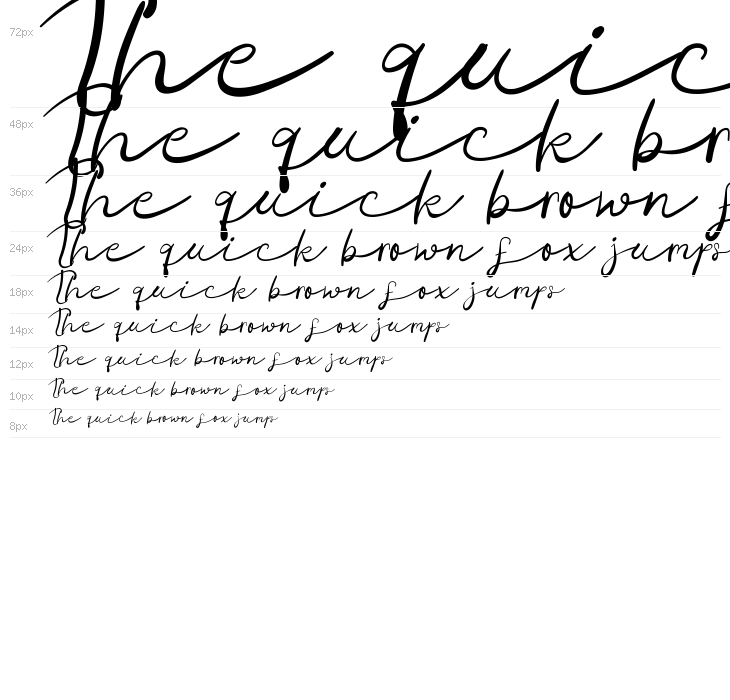 72px The quic
48px The quick br
36px The quick brown f
24px The quick brown fox jumps
18px The quick brown fox jumps
14px The quick brown fox jumps
12px The quick brown fox jumps
10px The quick brown fox jumps
8px The quick brown fox jumps